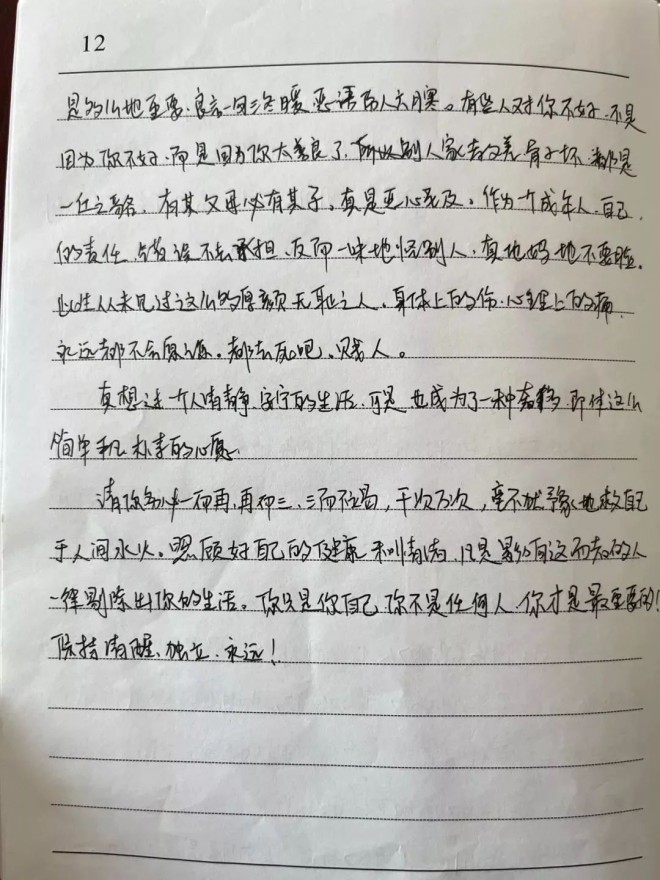 12
是多么地重要。良言一句三冬暖，恶语伤人六月寒。有些人对你不好，不是
因为你不好，而是因为你太善良了，所以别人家去 都是
一丘之貉，有其父母必有其子，真是恶心至及。作为一个成年人，自己
的责任 不去承担，反而一味地怪别人，真他妈地不要脸，
此生从未见过这么的厚颜无耻之人，身体上的伤，心理上的痛，
永远都不会愿谅。都去死吧，贱人。
真想过一个人清静、安宁的生活，可是也成为了一种奢移，即使这么
简单平凡朴素的心愿。
请你务必一而再，再而三，三而不竭，千次万次，毫不犹豫地救自己
于人间水火。照顾好自己的健康和情绪，凡是影响这两者的人
一律剔除出你的生活。你只是你自己，你不是任何人，你才是最重要的！
保持清醒、独立，永远！